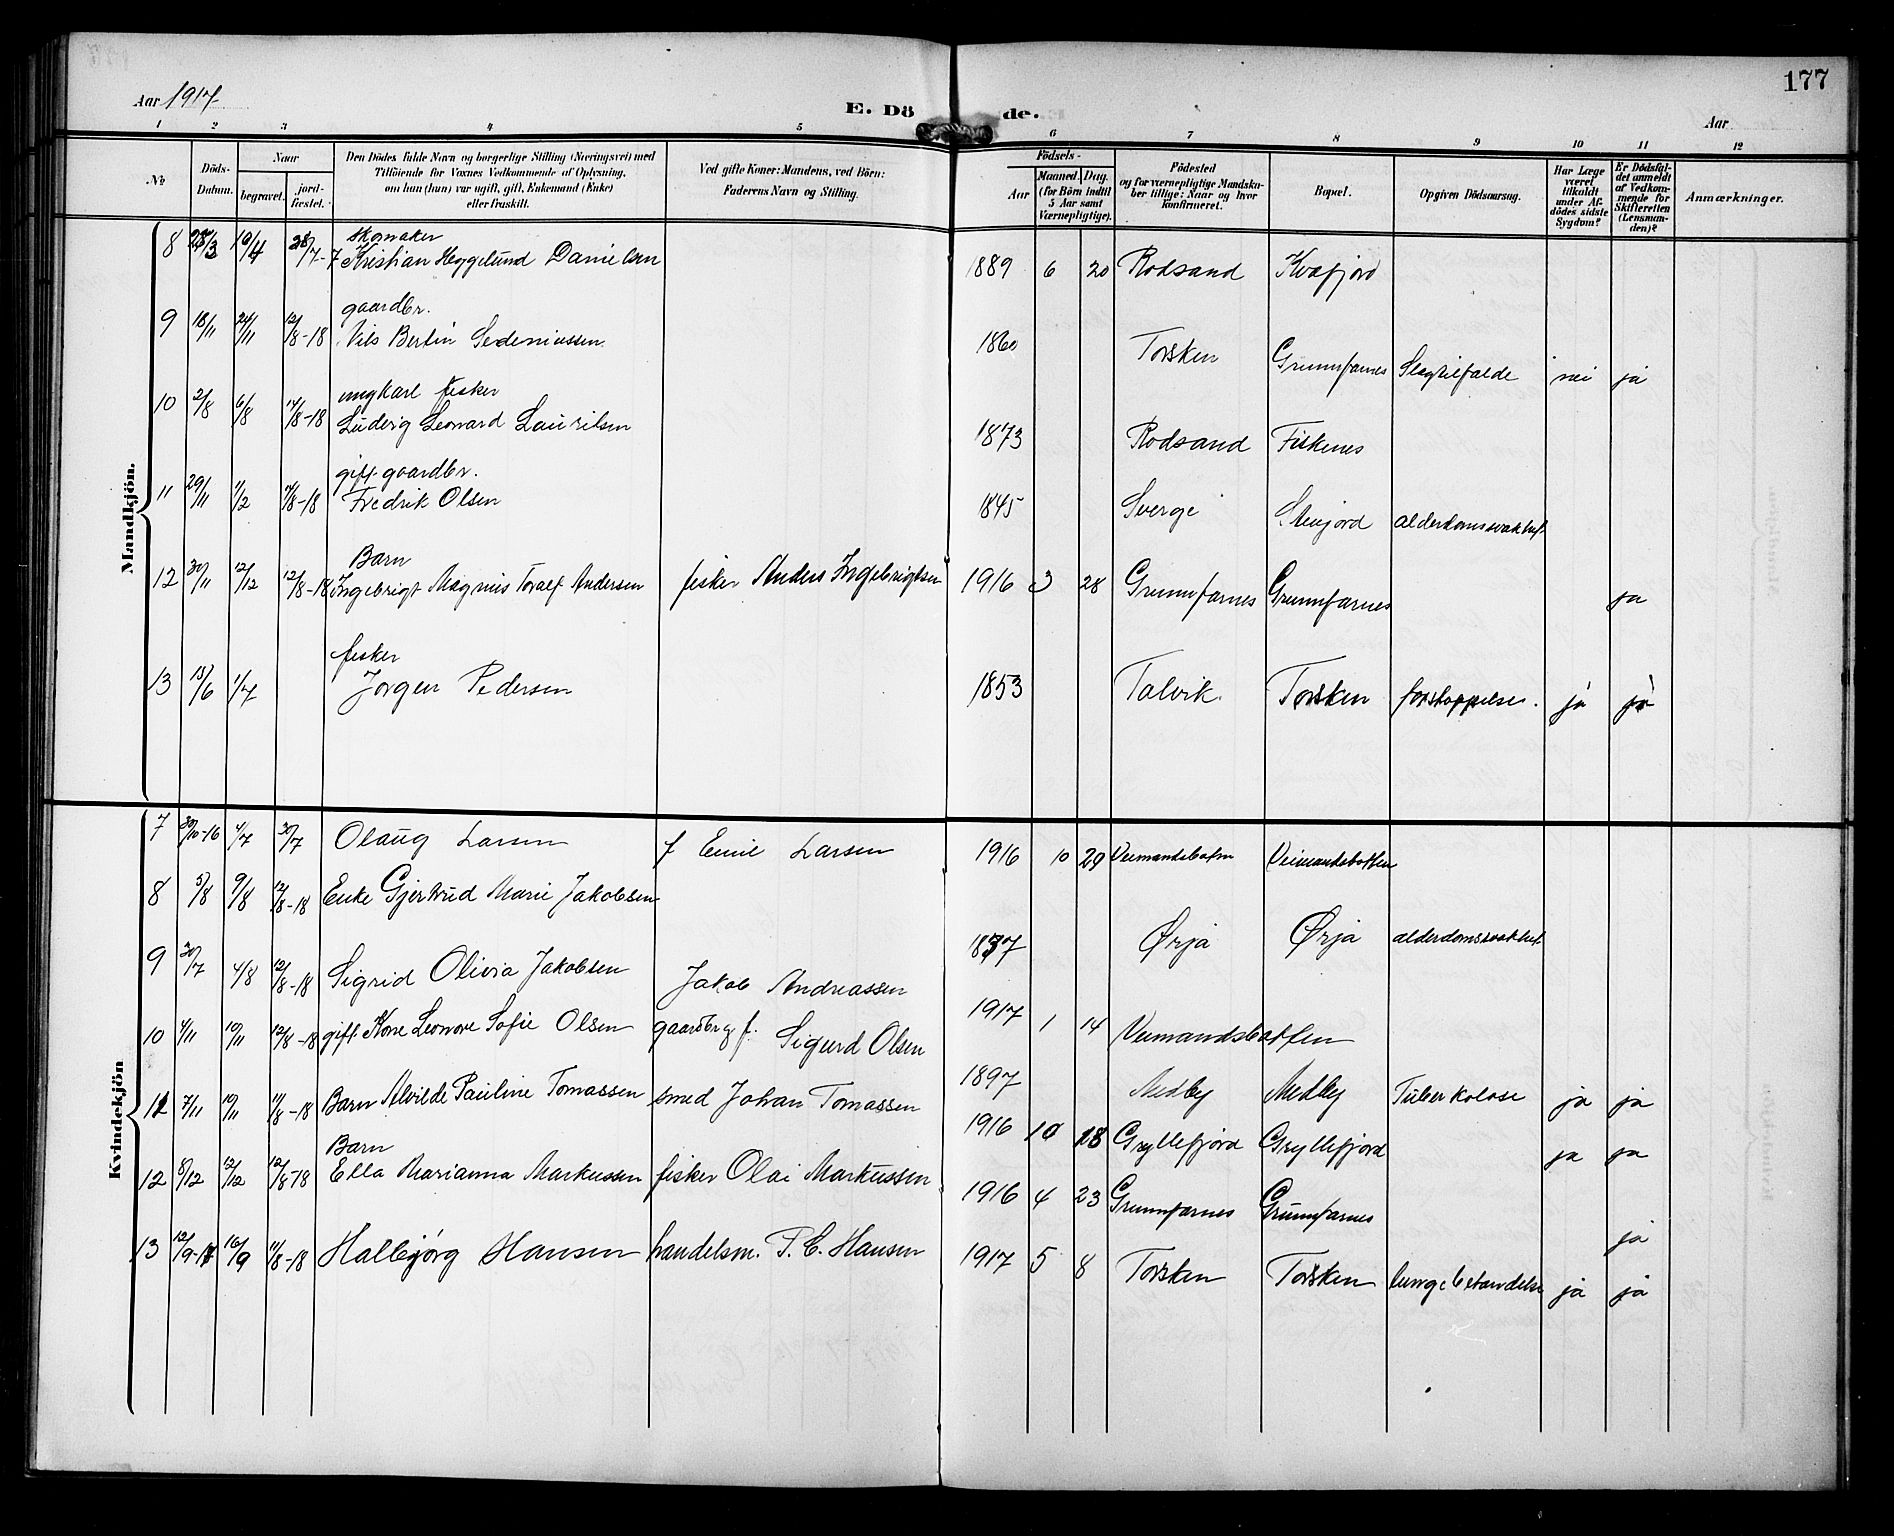 177
Aar 1917
E. Dö de.
Aar
1 2 3 4 5 6 7 8 9 10 11 12
No
Döds-Datum.
Naar
begravet.
jord-fæstet.
Den Dödes fulde Navn og borgerlige Stilling (Næringsvei) med Tilföiende for Voxnes Vedkommende af Oplysning, om hun (han) var ugift, gift, Enkemand (Enke) eller fraskilt.
Ved gifte Koner: Mandens, ved Börn: Faderens Navn og Stilling.
Födsels-
Aar
Maaned. Dag. (for Börn indtil 5 Aar samt Værnepligtige).
Födested og for værnepligtige Mandskaber tillige: Naar og hvor konfirmeret.
Bopæl.
Opgiven Dödsaarsag.
Har Læge været tilkaldt under Afdödes sidste Sygdom?
Er Dödsfaldet anmeldt af Vedkommende for Skifteretten (Lensmanden)?
Anmærkninger.
Mandkjön.
8 19/4 28/7-7 skomaker Kristian Heggelund Danielsen 1889 6 20 Rodsand Kvæfjord
9 18/11 24/11 12/8-18 gaardbr. Nils Bertin Sedeniussen 1860 Torsken Grunnfarnes Slagtilfælde nei ja
10 2/8 6/8 14/8-18 ungkarl fisker Ludvig Leonard Lauritsen 1873 Rodsand Fiskenes
11 29/11 1/2 11/8-18 gift gaardbr. Fredrik Olsen 1845 Sverge Steinjord alderdomssvakhet
12 30/11 12/12 12/8-18 Barn Ingebrigt Magnus Toralf Andersen fisker Anders Ingebrigtsen 1916 3 28 Grunnfarnes Grunnfarnes ja
13 15/6 1/7 fisker Jorgen Pedersen 1853 Talvik Torsken forstoppelse. ja ja
Kvindekjön
7 30/10-16 4/7 30/7 Olaug Larsen f Emil Larsen 1916 10 29 Veimandsbotten
8 5/8 9/8 12/8-18 Enke Gjertrud Marie Jakobsen 1837 Ørja Ørja alderdomssvakhet
9 30/7 4/8 12/8-18 Sigrid Olivia Jakobsen Jakob Andreassen 1917 1 14 Veimandsbotten
10 4/11 10/11 12/8-18 gift Kone Leonore Sofie Olsen gaardbr og f. Sigurd Olsen 1897 Medby Medby Tuberkolose ja ja
11 7/11 10/11 11/8-18 Barn Alvilde Pauline Tomassen smed Johan Tomassen 1916 10 18 Gryllefjord Gryllefjord ja ja
12 8/12 12/12 12/8-18 Barn Ella Marianna Markussen fisker Olai Markussen 1916 4 23 Grunnfarnes Grunnfarnes ja
13 12/9-17 16/9 11/8-18 Hallbjörg Hansen handelsm. P. C. Hansen 1917 5 8 Torsken Torsken lungebetændelse ja ja